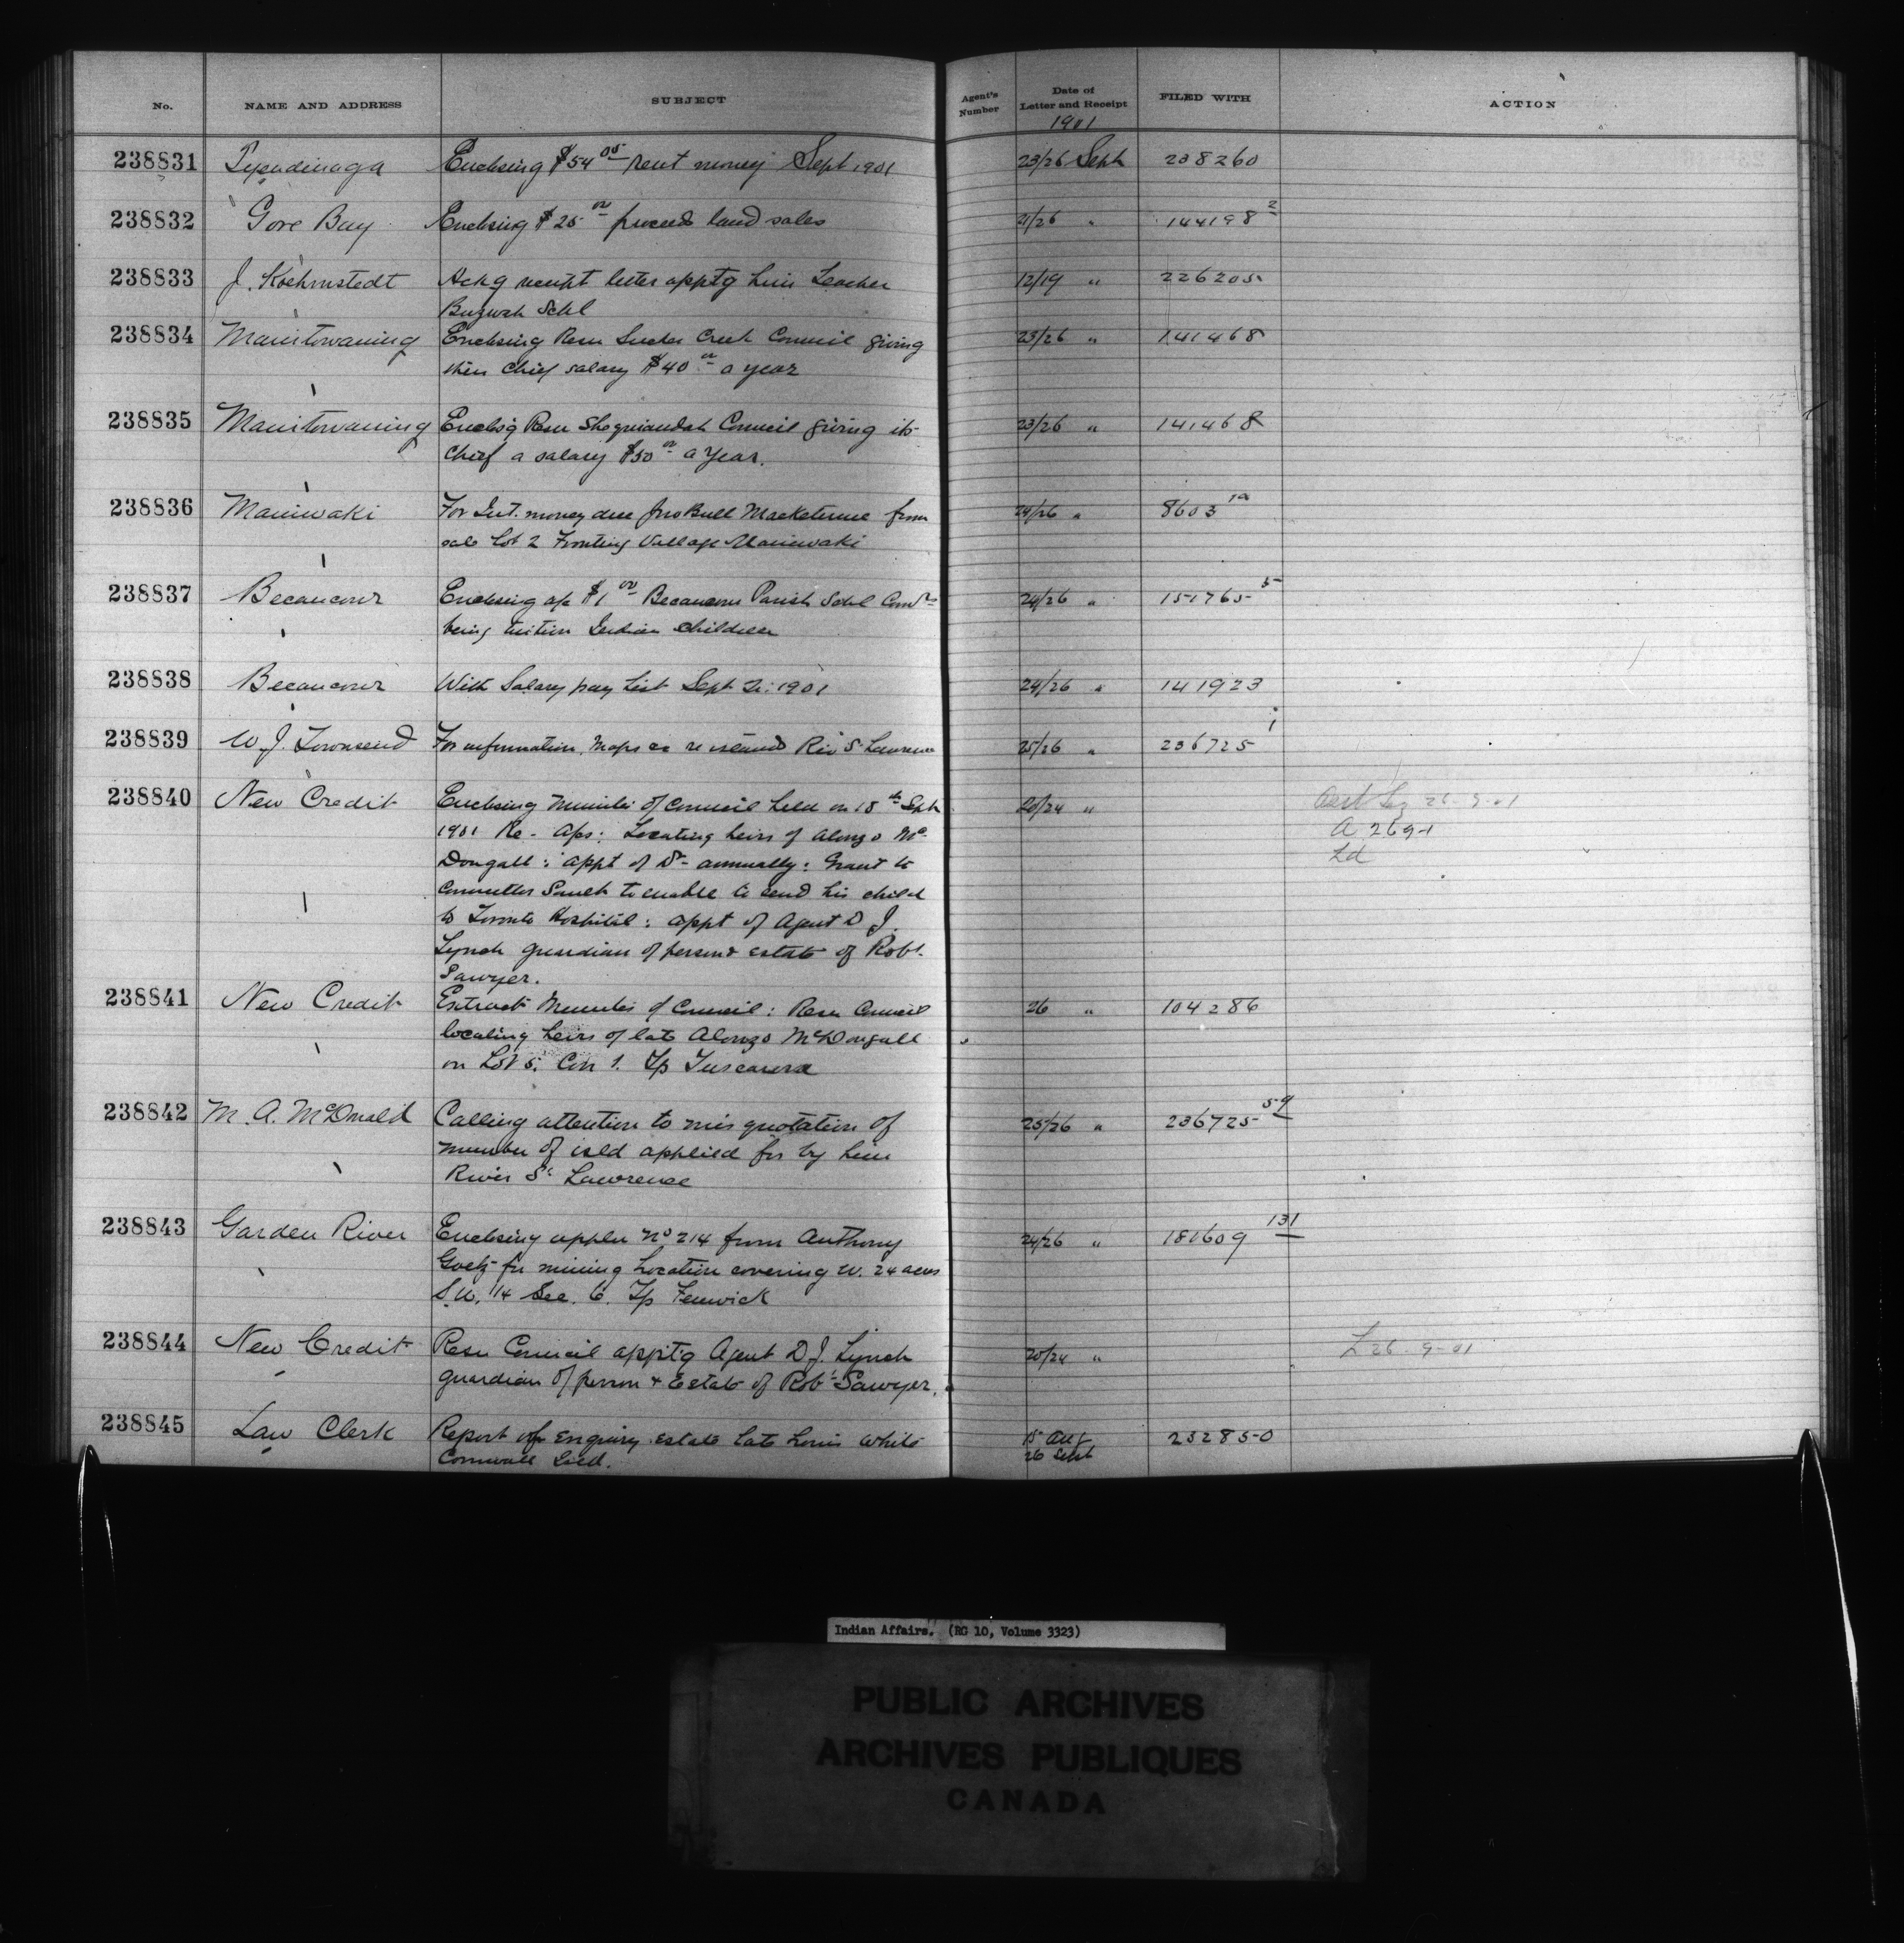 No. NAME AND ADDRESS SUBJECT Agent's Number Date of Letter and Receipt FILED WITH ACTION
1901
238831 Tyendinaga Enclosing $54 05 rent money Sept 1901 23/26 Sept 238260
238832 Gore Bay Enclosing $25 00 proceeds land sales 21/26 " 144198 2
238833 J. Koehmstedt Ackg receipt letter apptg him Teacher 12/19 " 226205
Buzwah Schl
238834 Manitowaning Enclosing Resn Sucker Creek Council giving 23/26 " 141468
their Chief salary $40 00 a year
238835 Manitowaning Enclosg Resn Sheguiandah Council giving its 23/26 " 141468
Chief a salary $50 00 a year.
238836 Maniwaki For Int. money due Jno Bull Macketimne from 24/26 " 8603 19
sale Lot 2 Fronting Village Maniwaki
238837 Becancour Enclosing a/c $1 00 Becancour Parish Schl Comrs 24/26 " 151765 5
being tuition Indian children
238838 Becancour With Salary pay List Sept 1901 24/26 " 141923
238839 W. J. Townsend For information, maps &c re islands Riv St Lawrence 25/26 " 236725 1
238840 New Credit Enclosing Minutes of Council held on 18th Sept 20/24 " 26-9-01
1901 Re- Aps: Locating heirs of Alonzo Mc A 269-1
Dougall: appt of Dr annually: Grant to Ld
Councillor to enable to send his child
to Toronto Hospital: appt of Agent D J.
Lynch guardian of person & estate of Robt.
Sawyer.
238841 New Credit Extract Minutes of Council: Resn Council 26 " 104286
locating heirs of late Alonzo McDougall
on Lot 5. Con 1. Tp Tuscarora
238842 M. A. McDonald Calling attention to mis quotation of 25/26 " 236725 59
number of isld applied for by him
River St. Lawrence
238843 Garden River Enclosing appln No 214 from Anthony 24/26 " 181609 131
Goetz for mining Location covering W. 24 acres
S.W. 1/4 Sec. 6. Tp Fenwick
238844 New Credit Resn Council apptg Agent D J. Lynch 20/24 " L 26-9-01
guardian of person & Estate of Robt Sawyer.
238845 Law Clerk Report of enquiry estate late Louis White 15 Aug 232850
Cornwall Isld. 26 Sept
Indian Affairs. (RG 10, Volume 3323)
PUBLIC ARCHIVES
ARCHIVES PUBLIQUES
CANADA